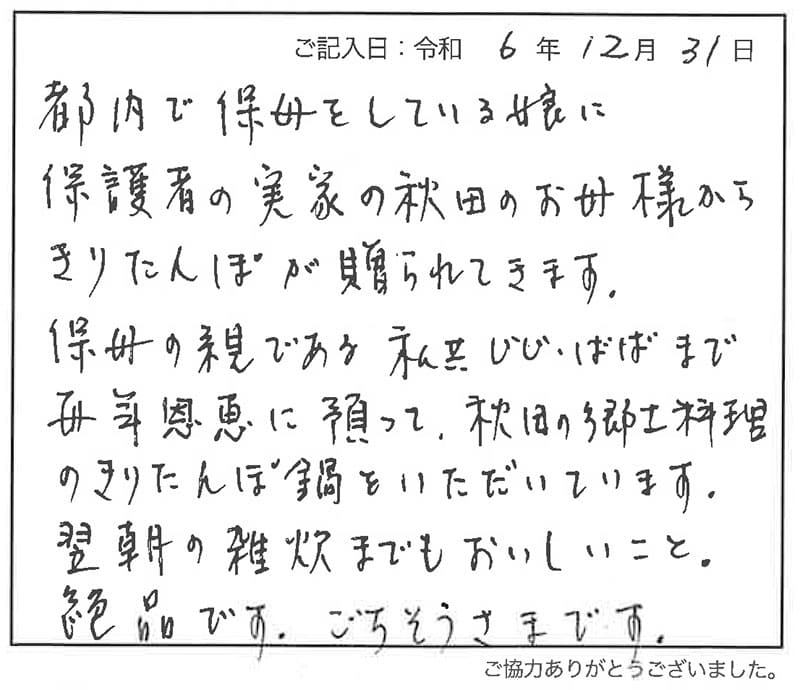 ご記入日：令和 6 年 12 月 31 日
都内で保母をしている娘に
保護者の実家の秋田のお母様から
きりたんぽが贈られてきます。
保母の親である私共じじ・ばばまで
毎年恩恵に預って、秋田の郷土料理
のきりたんぽ鍋をいただいています。
翌朝の雑炊までもおいしいこと。
絶品です。ごちそうさまです。
ご協力ありがとうございました。